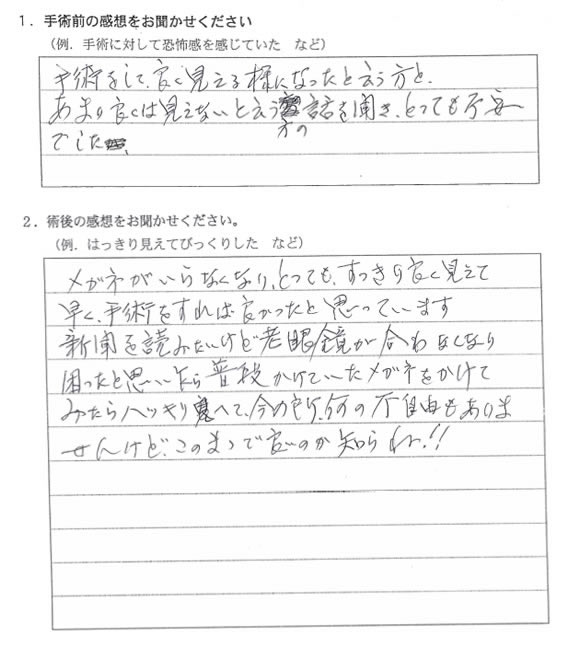 1．手術前の感想をお聞かせください
（例．手術に対して恐怖感を感じていた　など）
手術をして、良く見える様になったと云う方と、
あまり良くは見えないと云う方の話を聞き、とっても不安
でした
2．術後の感想をお聞かせください。
（例．はっきり見えてびっくりした　など）
メガネがいらなくなり、とっても、すっきり良く見えて
早く、手術をすれば良かったと思っています
新聞を読みたいけど老眼鏡が合わなくなり
困ったと思いいたら普段かけていたメガネをかけて
みたらハッキリ見へて、今の所、何の不自由もありま
せんけど、このまゝで良いのか知らね!!